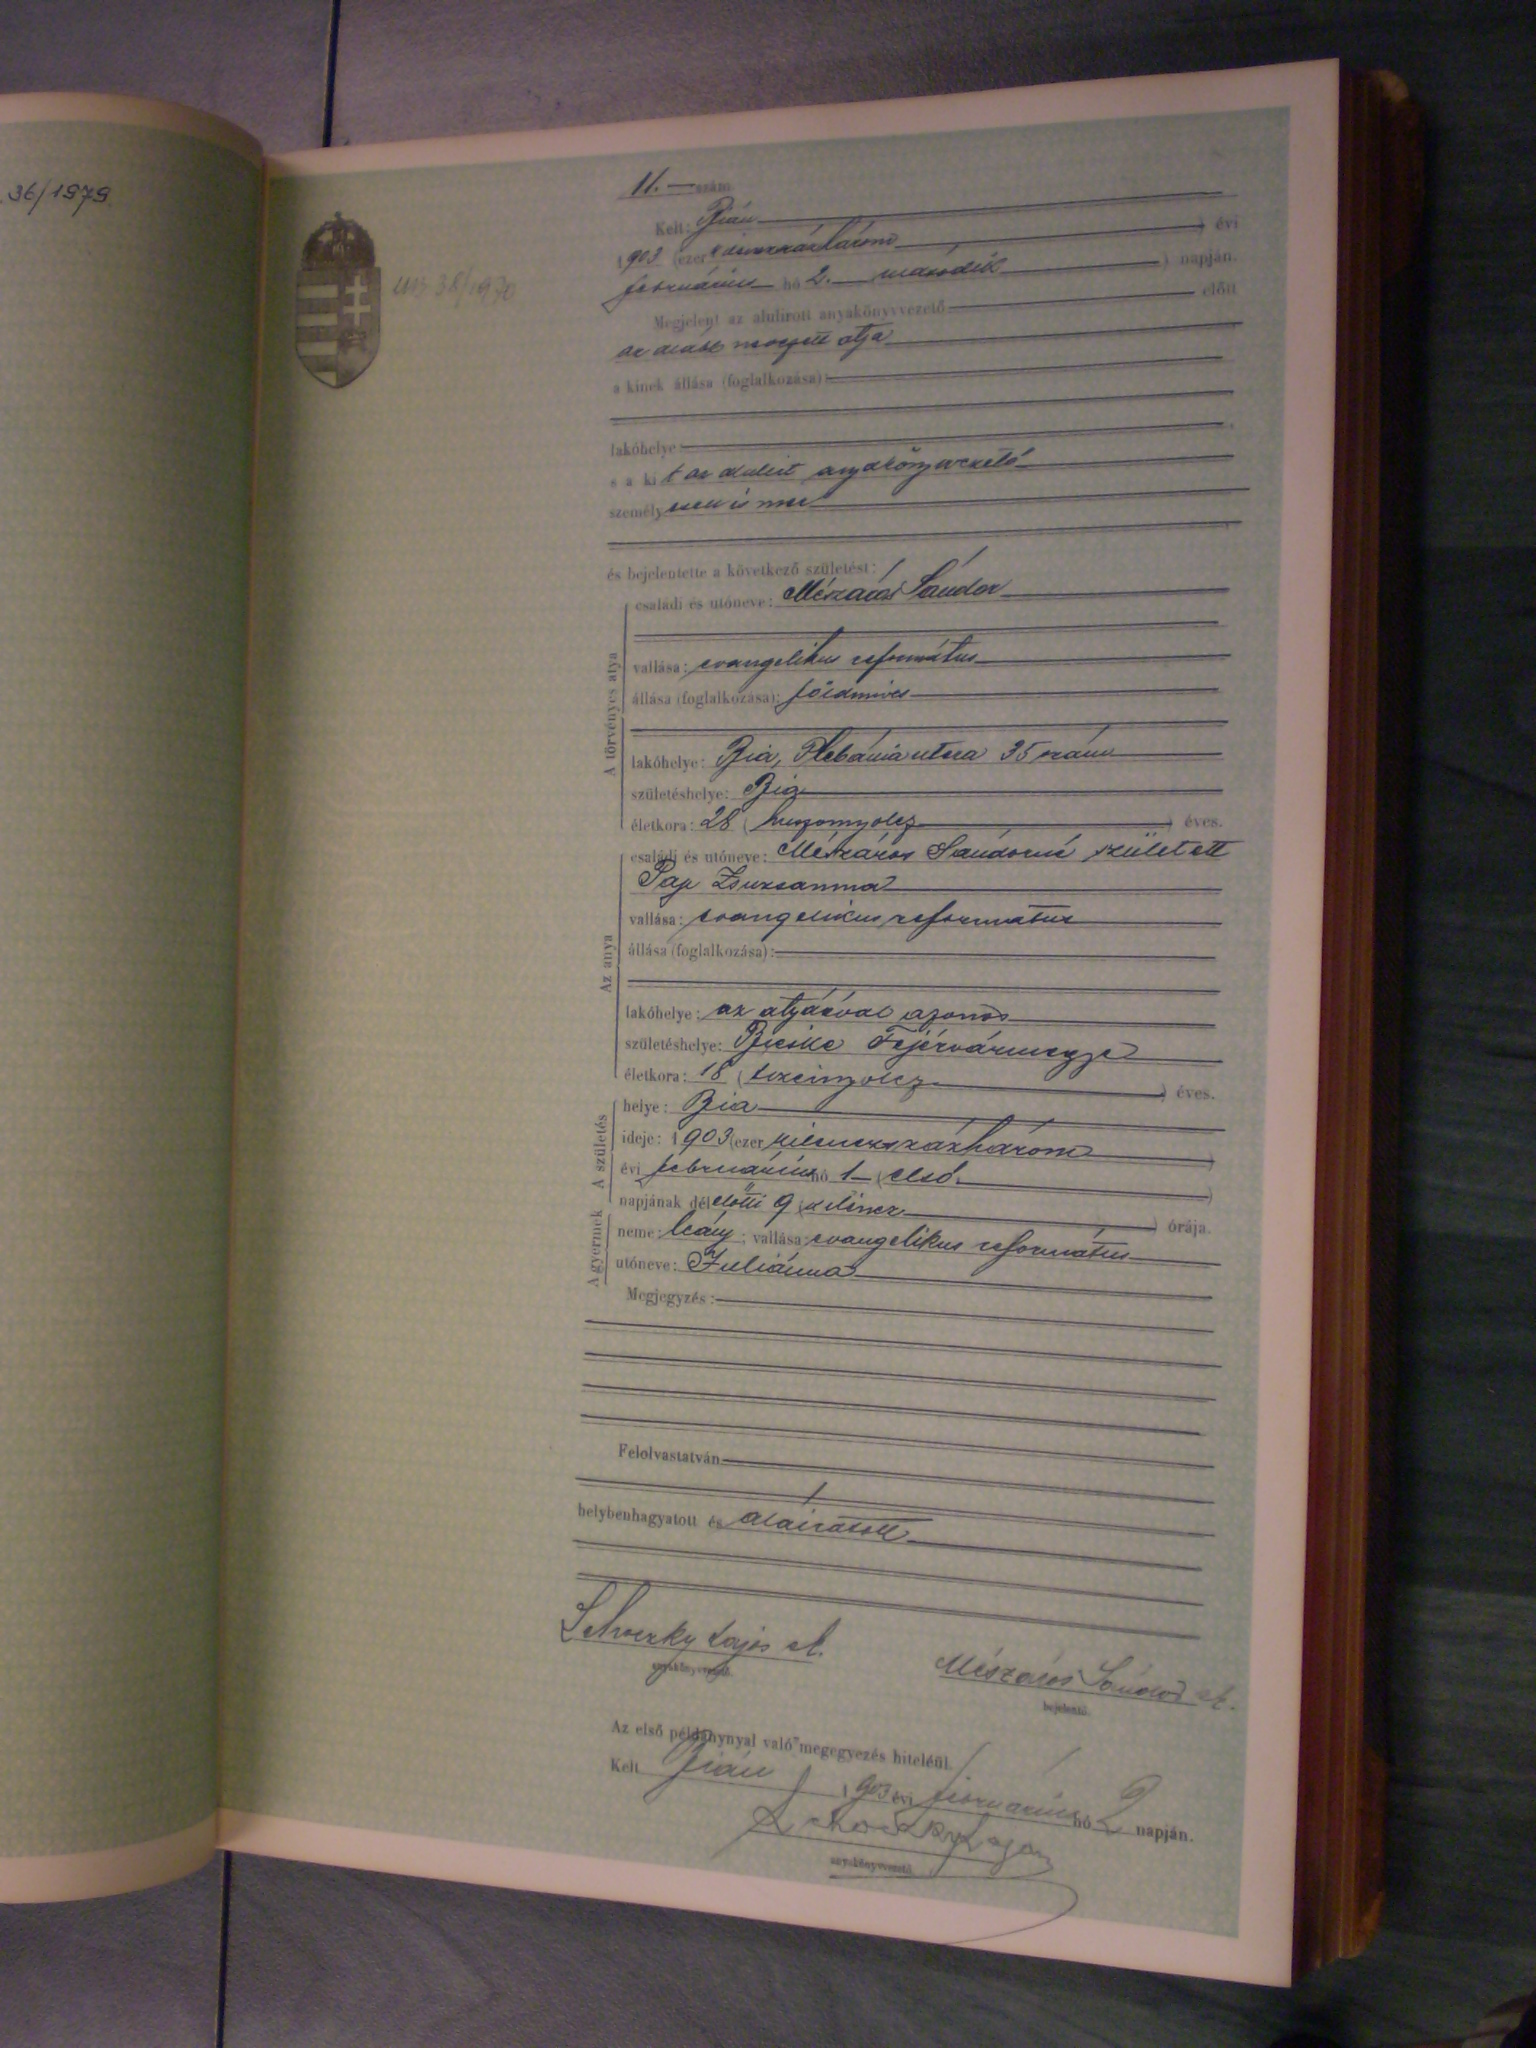 36/1979.
11. — szám
Kelt: Bián
1903 (ezer kilencszázhárom ) évi
február hó 2. második ) napján.
Megjelent az alulirott anyakönyvvezető előtt
az alább nevezett atya
a kinek állása (foglalkozása):
lakóhelye
s a kit az alulirt anyakönyvvezető
személyesen ismer
és bejelentette a következő születést:
A törvényes atya
családi és utóneve: Mészáros Sándor
vallása: evangelikus református
állása (foglalkozása): földmives
lakóhelye: Bia, Plebánia utcza 35 szám
születéshelye: Bia
életkora: 28 (huszonnyolcz ) éves.
Az anya
családi és utóneve: Mészáros Sándorné született
Pap Zsuzsanna
vallása: evangelikus református
állása (foglalkozása):
lakóhelye: az atyáéval azonos
születéshelye: Bicske Fejérvármegye
életkora: 18 (tizennyolcz ) éves.
A születés
helye: Bia
ideje: 1903 (ezer kilenczszázhárom )
évi február hó 1 (első )
napjának délelőtti 9 (kilencz ) órája.
A gyermek
neme: leány; vallása: evangelikus református
utóneve: Juliánna
Megjegyzés:
Felolvastatván
helybenhagyatott és aláiratott
Lajos
anyakönyvvezető.
Mészáros Sándor
bejelentő.
Az első példánynyal való megegyezés hiteléül.
Kelt Bián 1903 évi február hó 2 napján.
anyakönyvvezető.